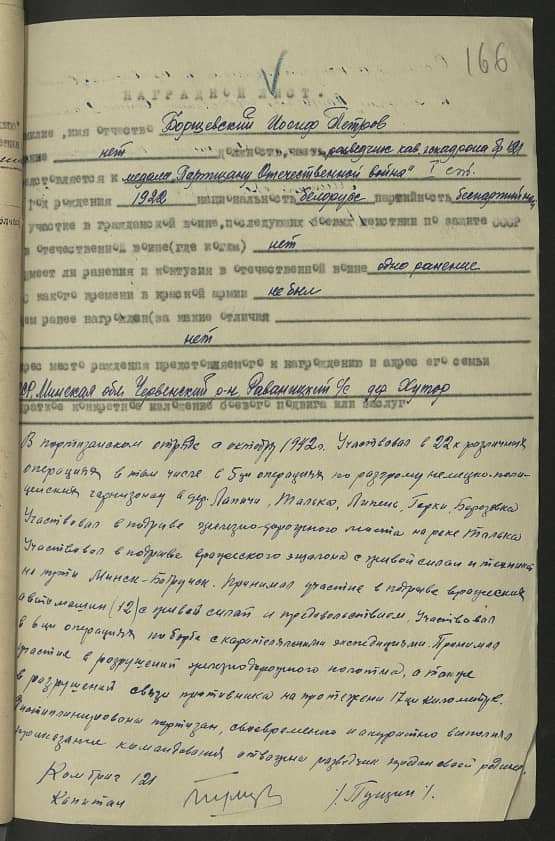 166
НАГРАДНОЙ ЛИСТ.
милие, имя отчество Борщевский Иосиф Петров
нет должность, часть разведчик кав. эскадрона бр 121
едставляется к медали "Партизану Отечественной войны" I ст.
год рождения 1922 национальность белорус партийность беспартийный
участие в гражданской воине, последующих боевых действии по защите СССР
в отечественной воине (где когда) нет
имеет ли ранения и контузия в отечественной воине одно ранение
с какого времени в красной армии не был
ем ранее награжден (за какие отличия
нет
рес место рождения представляемого к награждению и адрес его семьи
СР, Минская обл. Червенский р-н. Раваницкий с/с дер. Хутор
раткое конкретное изложение боевого подвига или заслуг
В партизанском отряде с октября 1942 г. Участвовал в 22х различных
операциях в том числе в 5ти операциях по разгрому немецко-поли-
цейских гарнизонов в дер. Лапичи, Талька, Липень, Горки, Березовка
Участвовал в подрыве железно-дорожного моста на реке Талька
Участвовал в подрыве вражеского эшалона с живой силай и техникой
на пути Минск-Бобруйск. Принимал участие в подрыве вражеских
автомашин (12) с живой силай и продовольствием. Участвовал
в операциях по борьбе с карательными экспедициями. Принимал
участие в разрушений железнодорожного полотна, а также
в разрушений связи противника на протяжени 17ти километров.
Дисциплинирован партизан, своевременно и акуратно выполнял
командования отважны разведчик предан своей родине.
Комбриг 121
Капитан /Пущин/.